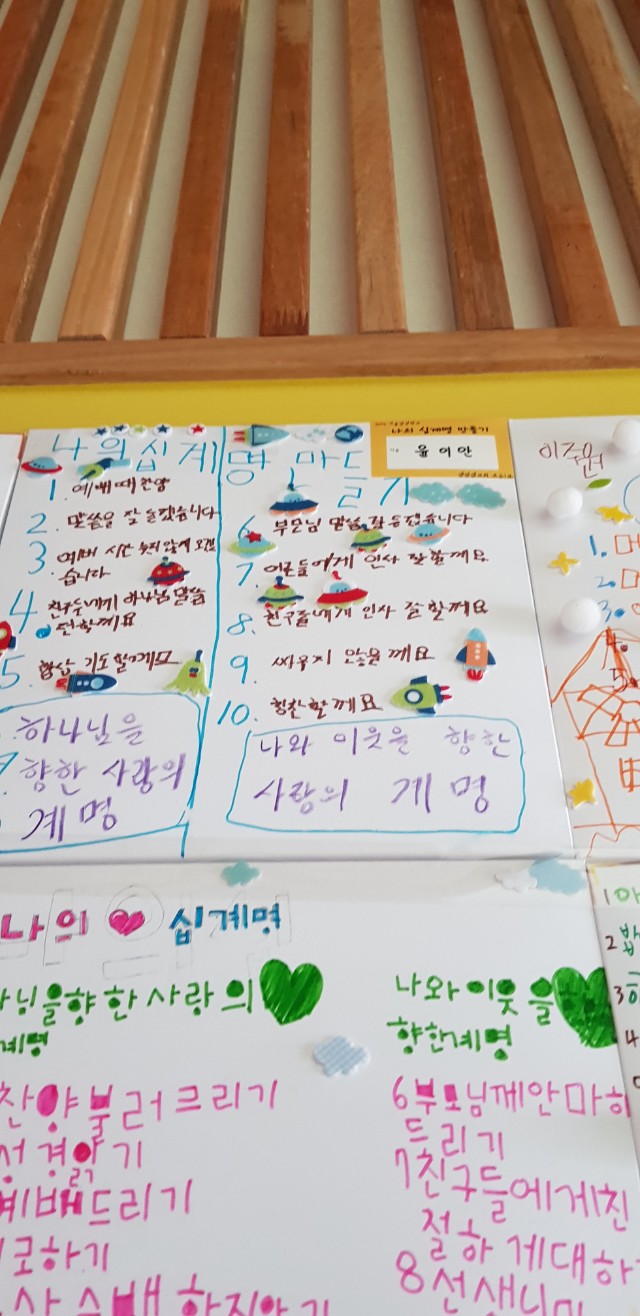 나의 십계명 만들기
나의 십계명 만들기
윤이안
1. 예배 때 찬양
2. 말씀을 잘 듣겠습니다
3 예배 시간 늦지 않게 오겠
습니다
4 친구들에게 하나님 말씀
전할께요
5. 항상 기도할께요
하나님을
향한 사랑의
계명
6 부모님 말씀 잘 듣겠습니다
7. 어른들에게 인사 잘할께요
8. 친구들에게 인사 잘 할께요
9. 싸우지 않을께요
10. 칭찬할께요
나와 이웃을 향한
사랑의 계명
1.
2.
3.
나의 십계명
님을향한사랑의
계명
찬양불러드리기
성경읽기
예배드리기
하기
나와이웃을
향한계명
6부모님께안마하
드리기
7친구들에게친
절하게대하
8선생님
1
2
3
4